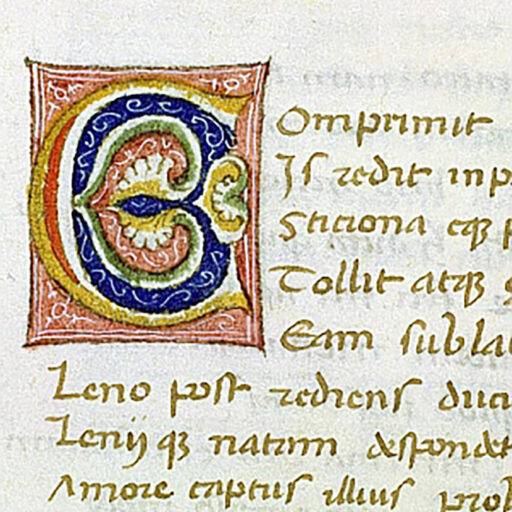 Comprimit
Is redit in p
Sticiona eqꝫ p
Tollit atqꝫ
Eam subla
Leno post rediens duci
Lenij qꝫ natum despondet
Amore captus illius prob